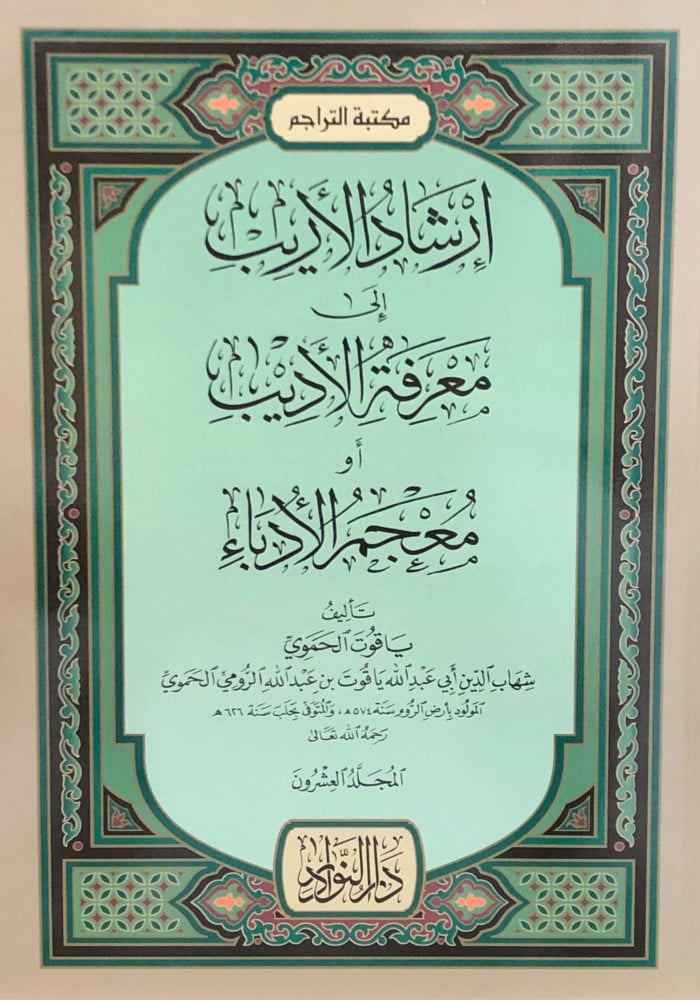 مكتبة التراجم
إِرْشَادُ الأَرِيبِ
إِلَى
مَعْرِفَةِ الأَدِيْبِ
أَو
مُعْجَمُ الأُدَبَاءِ
تَأليفُ
يَاقُوتَ الحَمَوِيِّ
شِهَابِ الدِّينِ أَبِي عَبْدِ اللهِ يَاقُوتَ بنِ عَبْدِ اللهِ الرُّومِيِّ الحَمَوِيِّ
المَولُودِ بِأَرضِ الرُّومِ سَنَة ٥٧٤ هـ، وَالمُتَوَفَّى بِحَلَبَ سَنَة ٦٢٦ هـ
رَحِمَهُ اللهُ تَعَالَى
المُجَلَّدُ العِشْرُونَ
دَارُ النَّوَادِرِ